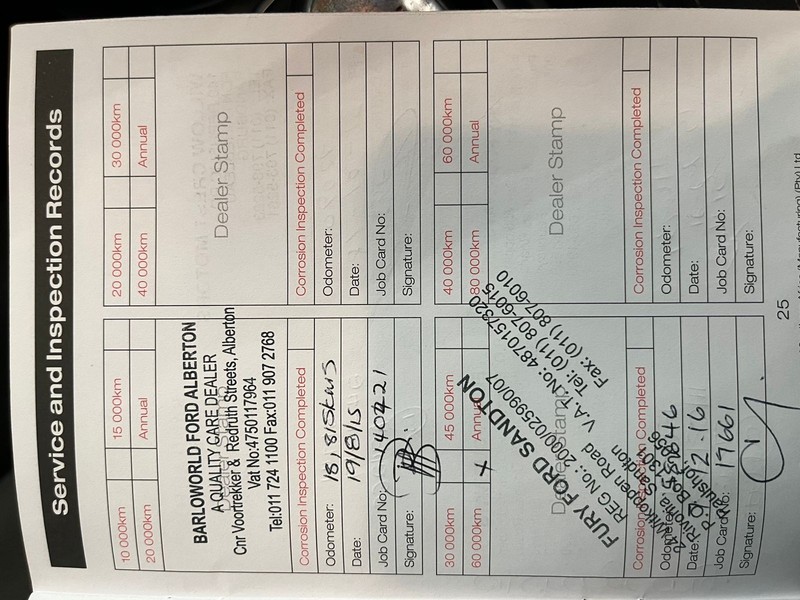 Service and Inspection Records
10 000km 15 000km
20 000km Annual
BARLOWORLD FORD ALBERTON
A QUALITY CARE DEALER
Cnr Voortrekker & Redruth Streets, Alberton
Vat No:4750117964
Tel:011 724 1100 Fax:011 907 2768
Corrosion Inspection Completed
Odometer: 18,815kms
Date: 19/8/15
Job Card No: 140421
Signature:
20 000km 30 000km
40 000km Annual
Dealer Stamp
Corrosion Inspection Completed
Odometer:
Date:
Job Card No:
Signature:
30 000km 45 000km
60 000km Annual
Dealer Stamp
FURY FORD SANDTON
REG No.: 2000/025990/07
V.A.T No: 4870157320
Tel: (011) 807-6015
Fax: (011) 807-6010
Corrosion Inspection Completed
Odometer:
Date: 12.16
Job Card No: 17661
Signature:
40 000km 60 000km
80 000km Annual
Dealer Stamp
Corrosion Inspection Completed
Odometer:
Date:
Job Card No:
Signature:
25